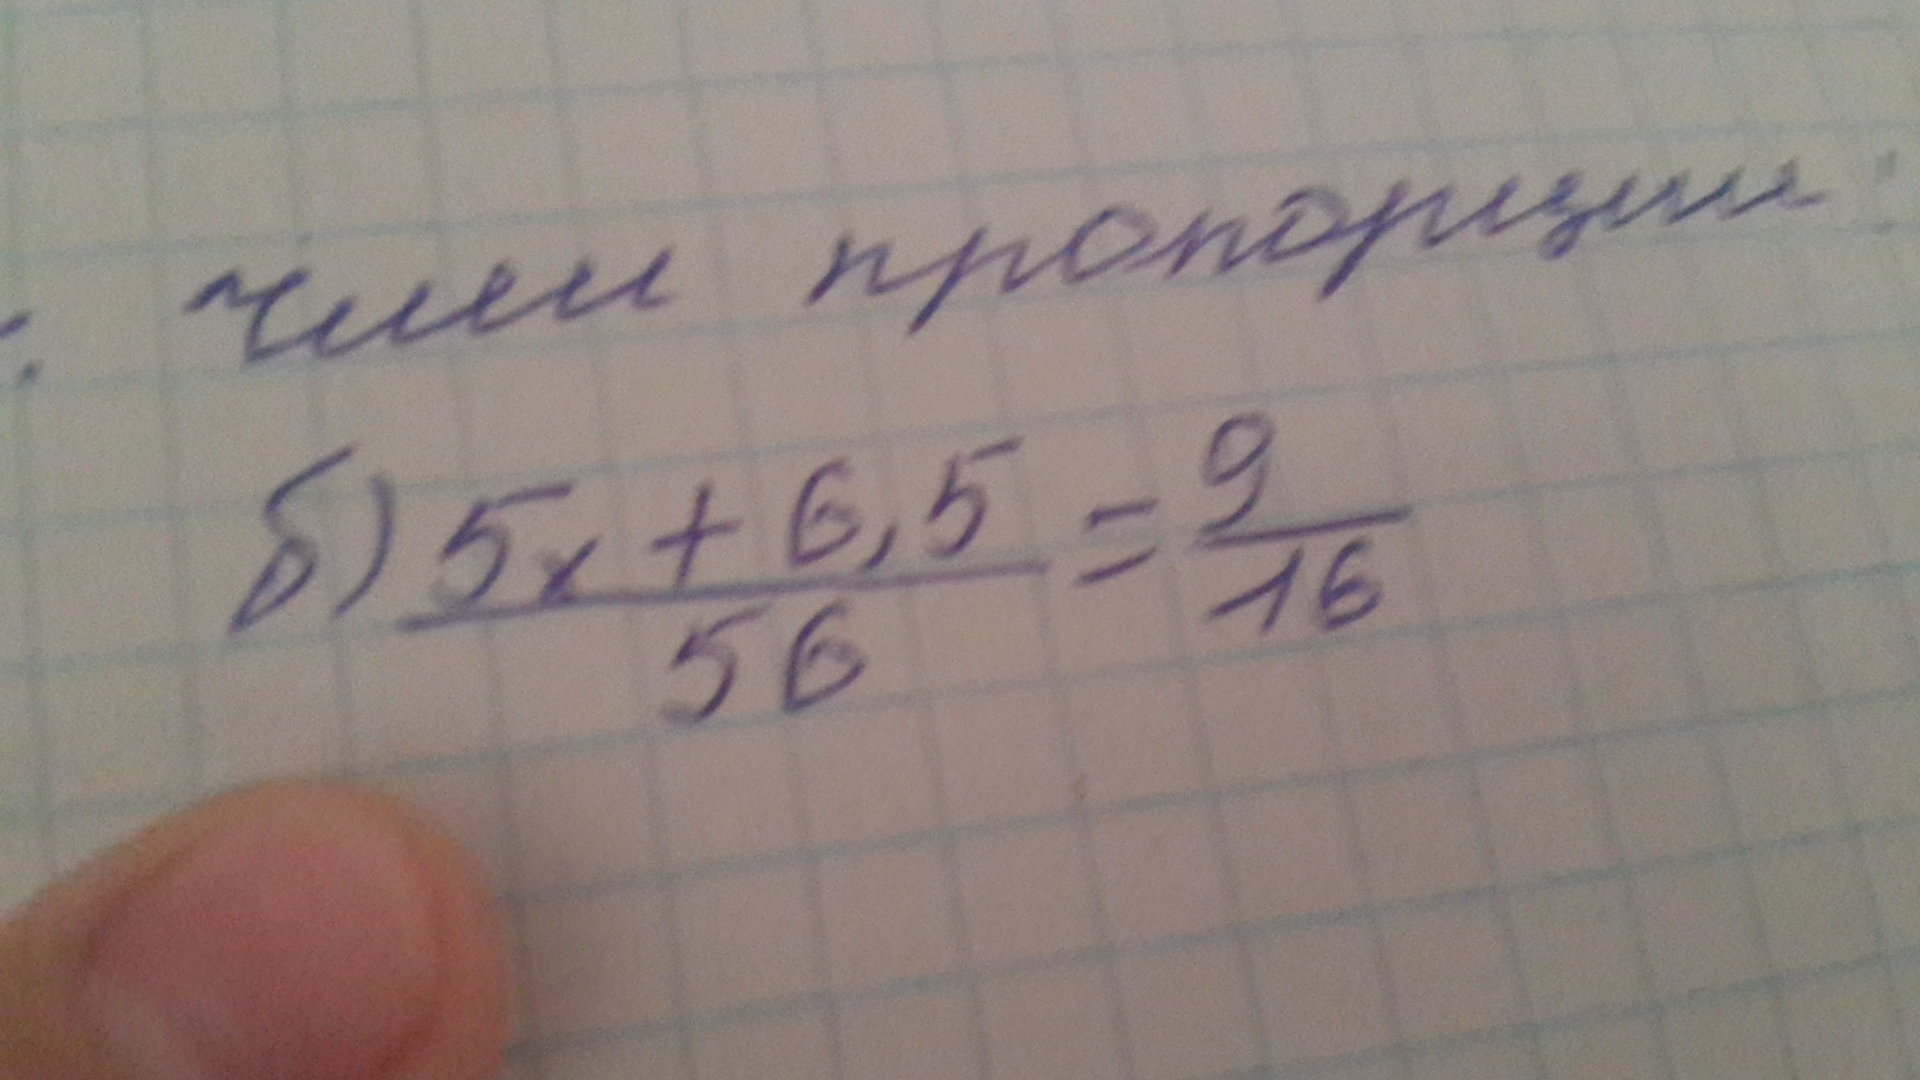 член пропорции:
б) (5x + 6,5)/56 = 9/16